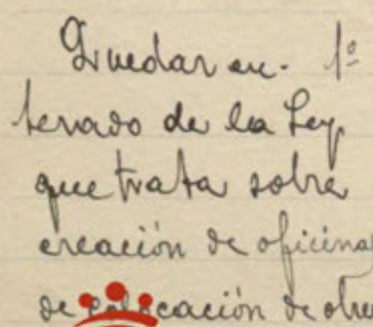 Quedar en- 1º
terado de la Ley
que trata sobre
creación de oficinas
de colocación de obre